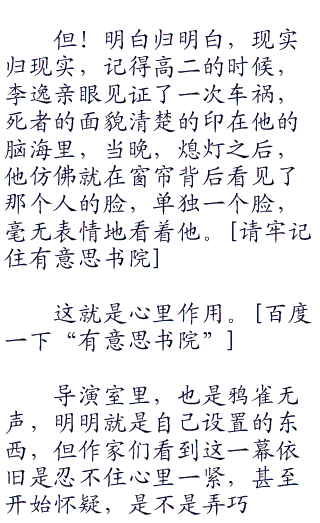 但！明白归明白，现实
归现实，记得高二的时候，
李逸亲眼见证了一次车祸，
死者的面貌清楚的印在他的
脑海里，当晚，熄灯之后，
他仿佛就在窗帘背后看见了
那个人的脸，单独一个脸，
毫无表情地看着他。[请牢记
住有意思书院]
这就是心里作用。[百度
一下“有意思书院”]
导演室里，也是鸦雀无
声，明明就是自己设置的东
西，但作家们看到这一幕依
旧是忍不住心里一紧，甚至
开始怀疑，是不是弄巧